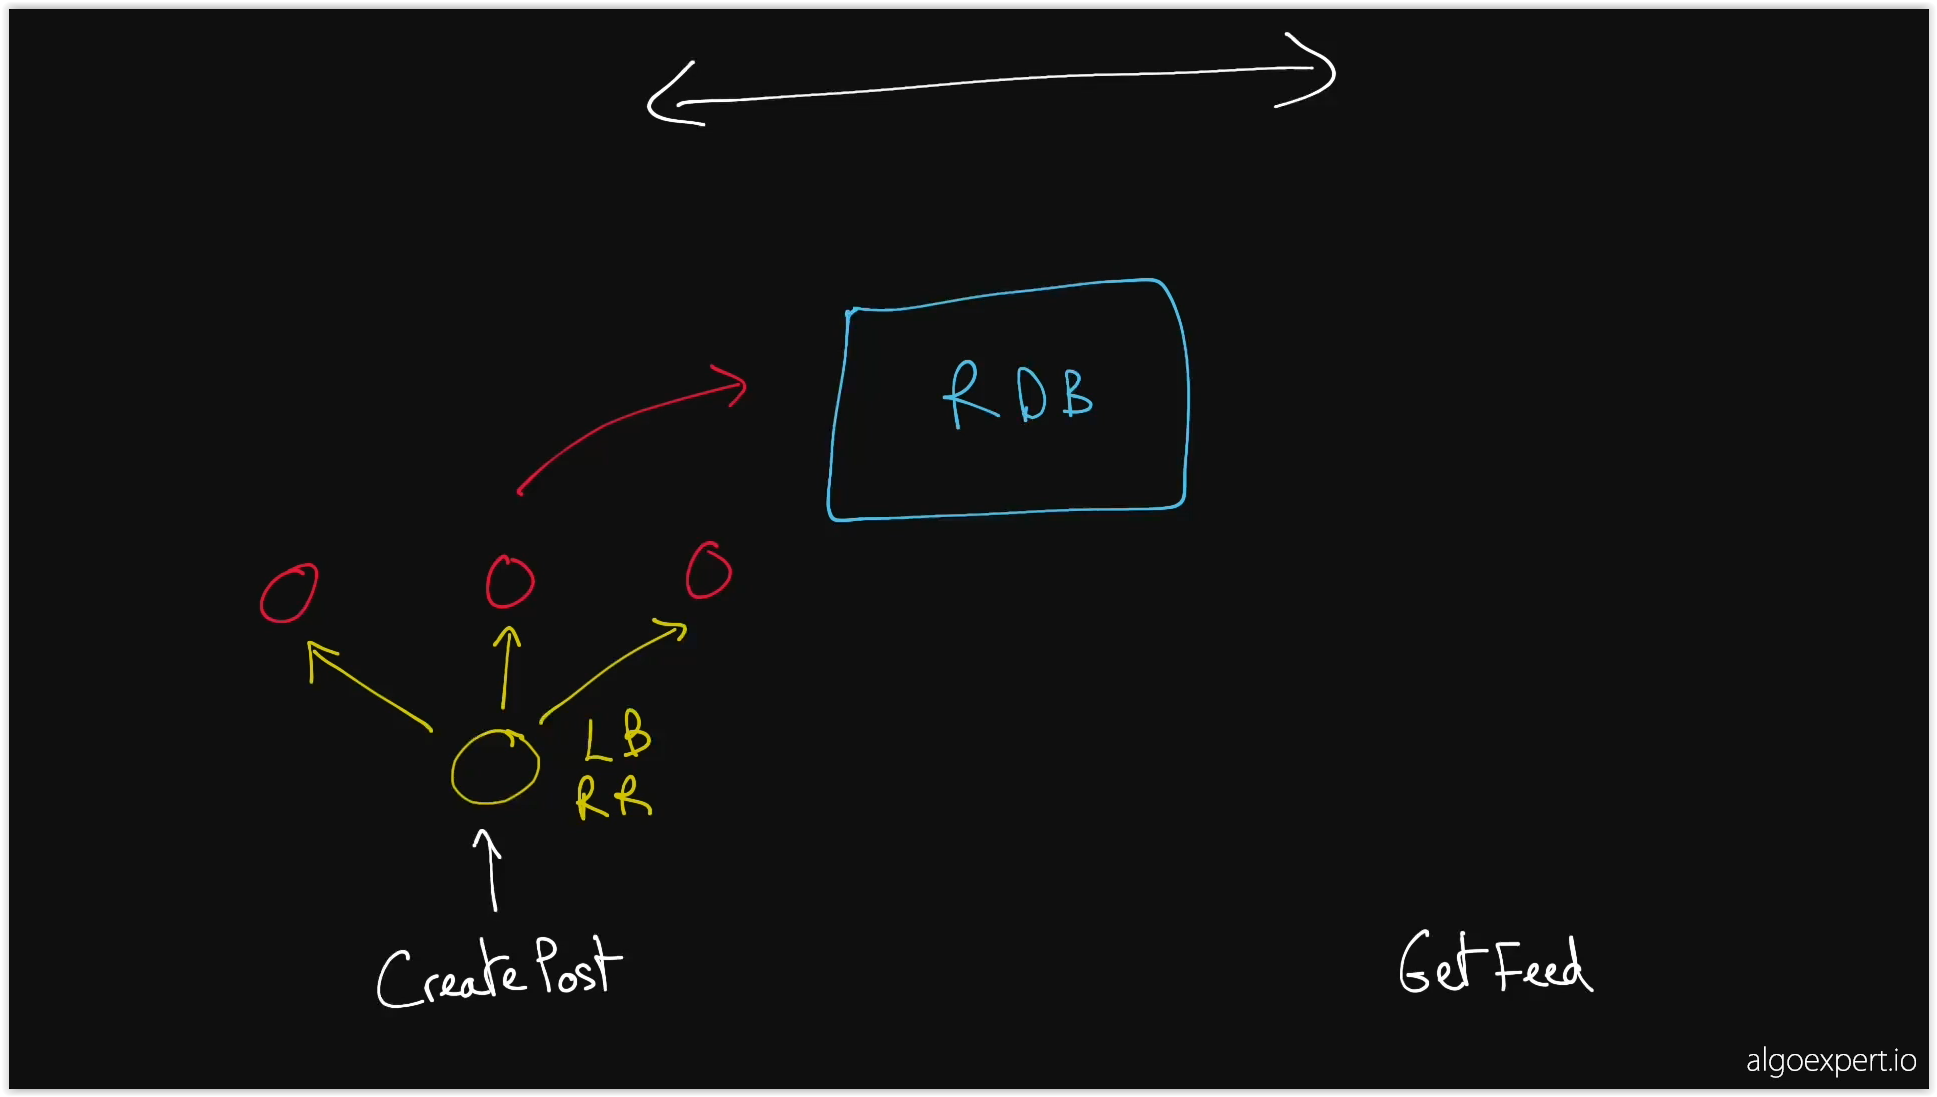 RDB
LB
RR
CreatePost
GetFeed
algoexpert.io